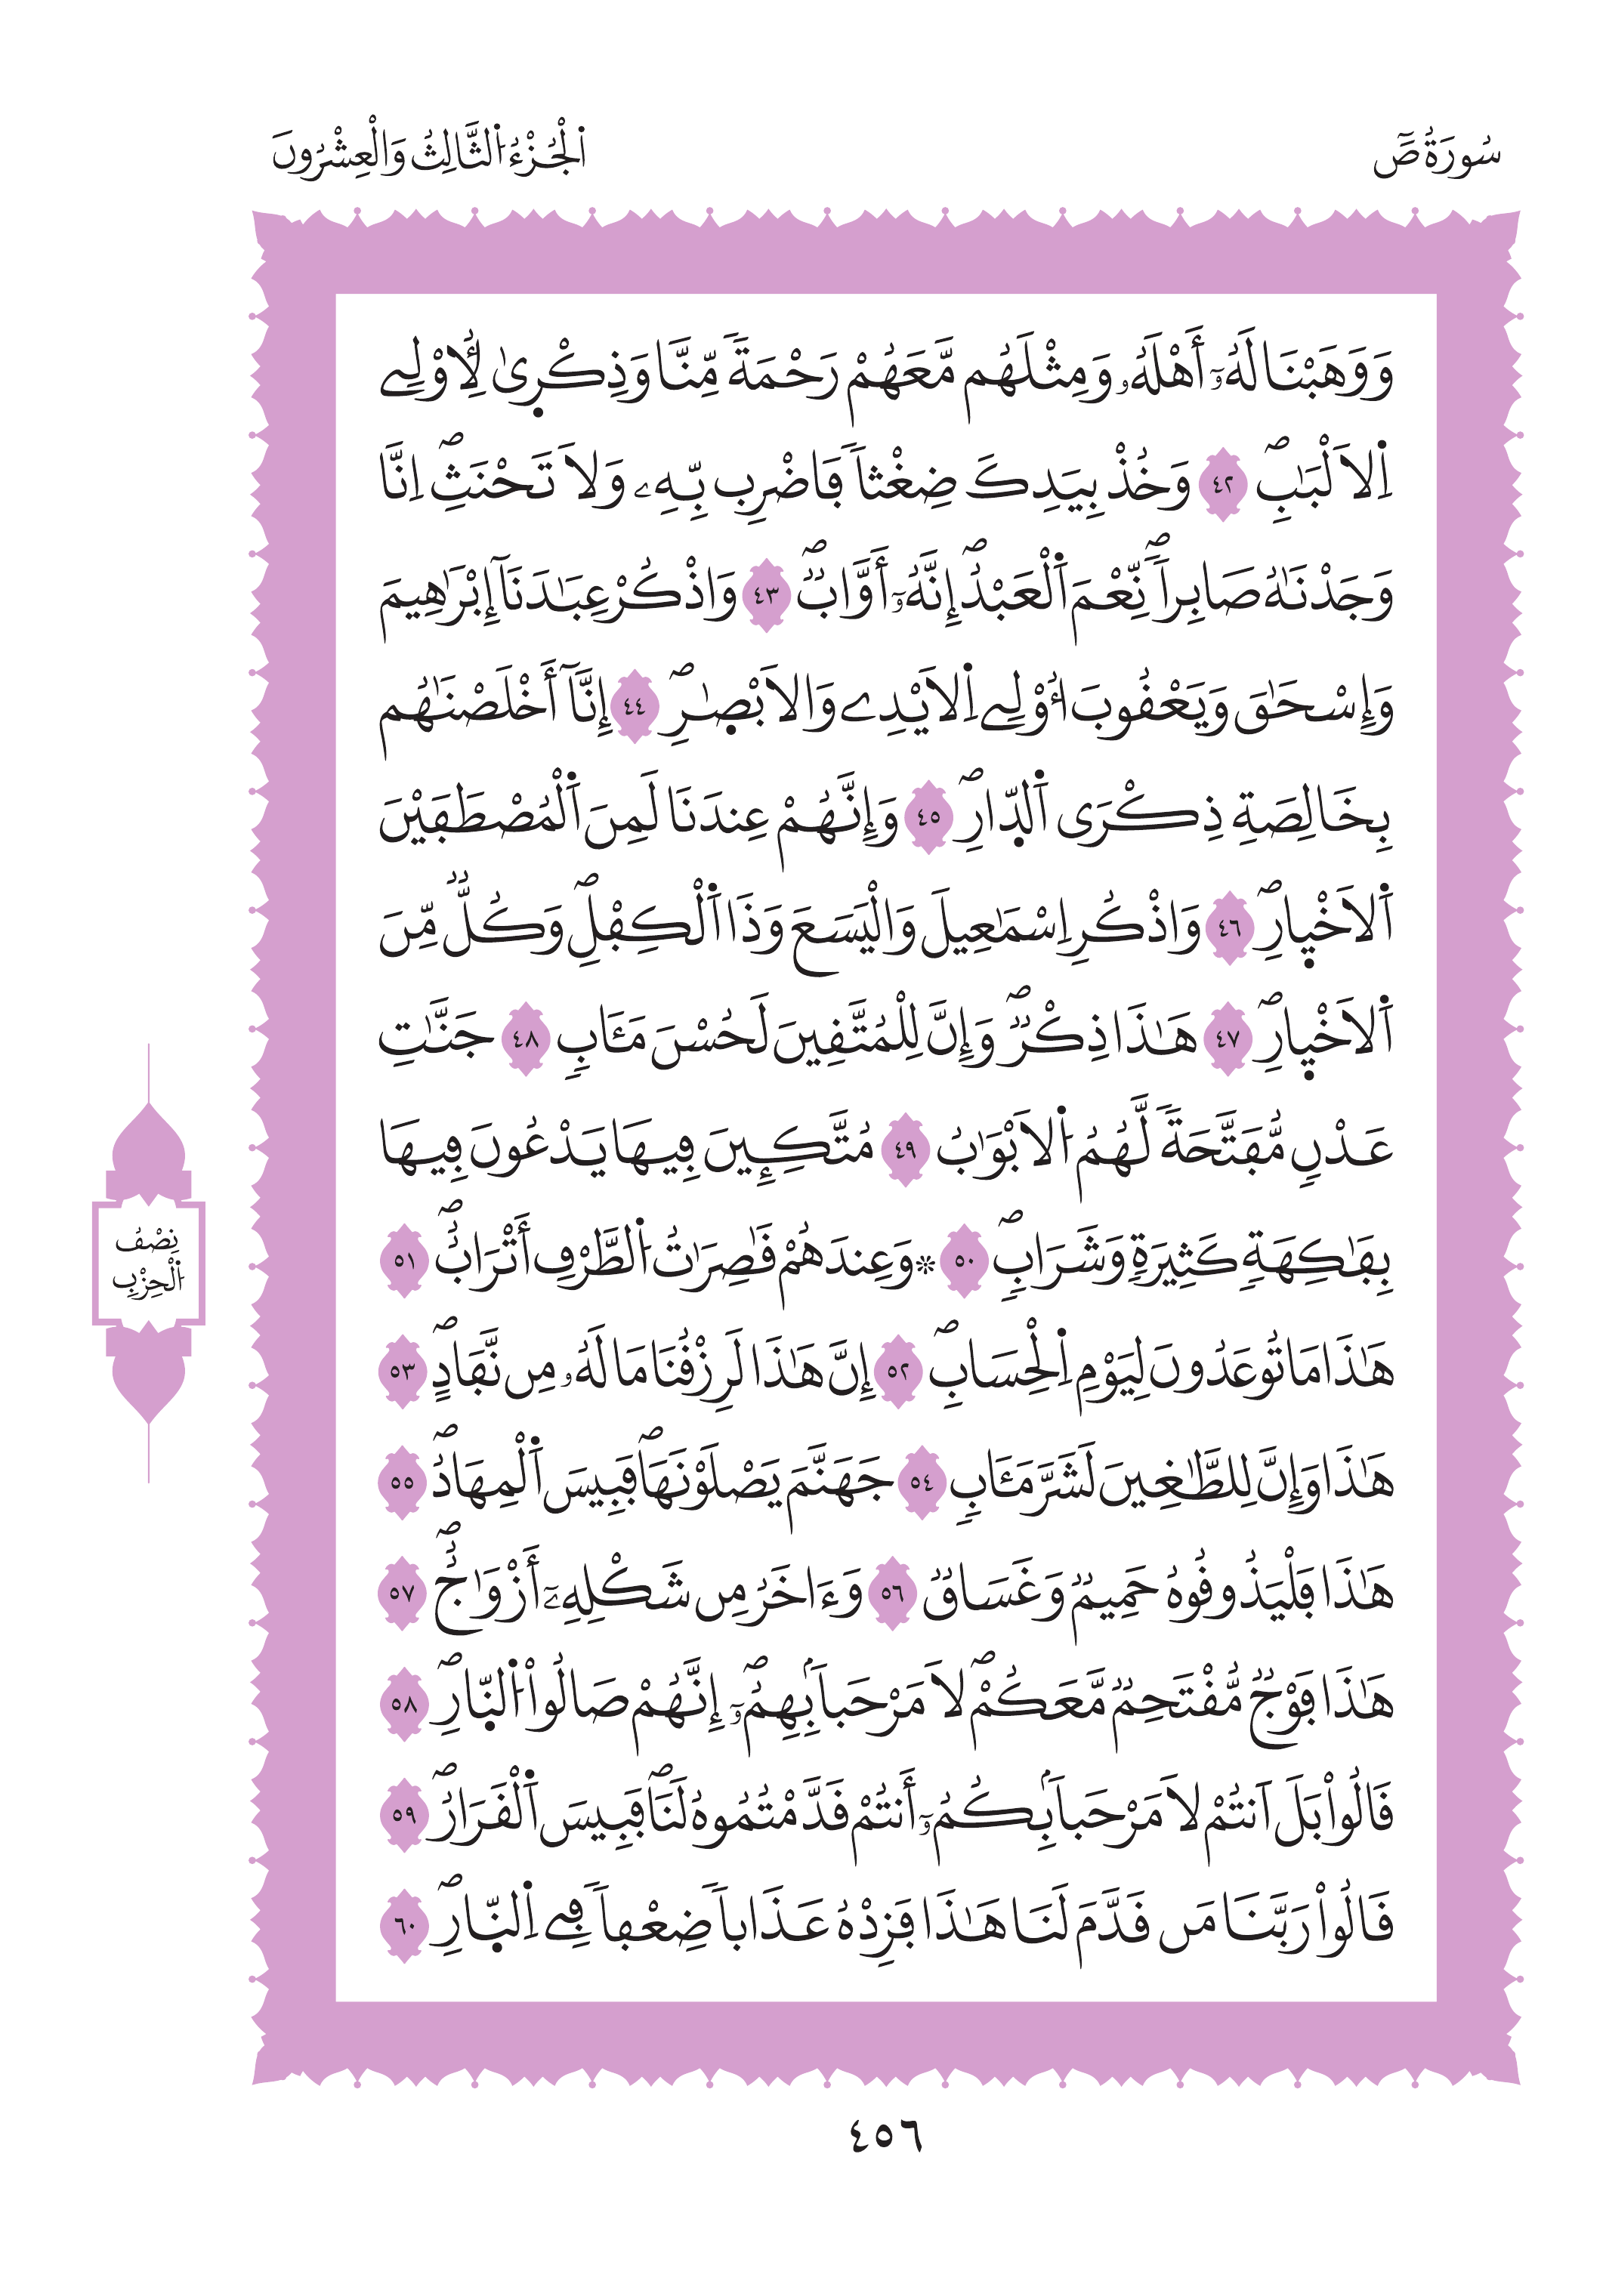 سُورَةُ صَٓ
اُ۬لْجُزْءُ اُ۬لثَّالِثُ وَالْعِشْرُونَ
وَوَهَبْنَا لَهُۥٓ أَهْلَهُۥ وَمِثْلَهُم مَّعَهُمْ رَحْمَةٗ مِّنَّا وَذِكْر۪يٰ لِأُوْلِے
اِ۬لَالْبَٰبِۖ ٤٢ وَخُذْ بِيَدِكَ ضِغْثاٗ فَاضْرِب بِّهِۦ وَلَا تَحْنَثِۖ اِنَّا
وَجَدْنَٰهُ صَابِراٗۖ نِّعْمَ اَ۬لْعَبْدُۖ إِنَّهُۥٓ أَوَّابٞۖ ٤٣ وَاذْكُرْ عِبَٰدَنَآ إِبْرَٰهِيمَ
وَإِسْحَٰقَ وَيَعْقُوبَ أُوْلِے اِ۬لَايْدِے وَالَابْصٰ۪رِۖ ٤٤ إِنَّآ أَخْلَصْنَٰهُم
بِخَالِصَةِ ذِكْرَى اَ۬لدّ۪ارِۖ ٤٥ وَإِنَّهُمْ عِندَنَا لَمِنَ اَ۬لْمُصْطَفَيْنَ
اَ۬لَاخْي۪ارِۖ ٤٦ وَاذْكُرِ اِسْمَٰعِيلَ وَالْيَسَعَ وَذَا اَ۬لْكِفْلِۖ وَكُلّٞ مِّنَ
اَ۬لَاخْي۪ارِۖ ٤٧ هَٰذَا ذِكْرٞۖ وَإِنَّ لِلْمُتَّقِينَ لَحُسْنَ مَـَٔابٖ ٤٨ جَنَّٰتِ
عَدْنٖ مُّفَتَّحَةٗ لَّهُمُ اُ۬لَابْوَٰبُ ٤٩ مُتَّكِـِٕينَ فِيهَا يَدْعُونَ فِيهَا
بِفَٰكِهَةٖ كَثِيرَةٖ وَشَرَابٖۖ ٥٠ ۞وَعِندَهُمْ قَٰصِرَٰتُ اُ۬لطَّرْفِ أَتْرَابٌۖ ٥١
هَٰذَا مَا تُوعَدُونَ لِيَوْمِ اِ۬لْحِسَابِۖ ٥٢ إِنَّ هَٰذَا لَرِزْقُنَا مَا لَهُۥ مِن نَّفَادٍۖ ٥٣
هَٰذَا وَإِنَّ لِلطَّٰغِينَ لَشَرَّ مَـَٔابٖ ٥٤ جَهَنَّمَ يَصْلَوْنَهَاۖ فَبِيسَ اَ۬لْمِهَادُۖ ٥٥
هَٰذَا فَلْيَذُوقُوهُ حَمِيمٞ وَغَسَاقٞ ٥٦ وَءَاخَرُ مِن شَكْلِهِۦٓ أَزْوَٰجٌۖ ٥٧
هَٰذَا فَوْجٞ مُّقْتَحِمٞ مَّعَكُمْۖ لَا مَرْحَباَۢ بِهِمُۥٓۖ إِنَّهُمْ صَالُواْ اُ۬لنّ۪ارِۖ ٥٨
قَالُواْ بَلَ اَنتُمْ لَا مَرْحَباَۢ بِكُمُۥٓ أَنتُمْ قَدَّمْتُمُوهُ لَنَاۖ فَبِيسَ اَ۬لْقَرَارُۖ ٥٩
قَالُواْ رَبَّنَا مَن قَدَّمَ لَنَا هَٰذَا فَزِدْهُ عَذَاباٗ ضِعْفاٗ فِے اِ۬لنّ۪ارِۖ ٦٠
نِصْفُ
اُ۬لْحِزْبِ
٤٥٦